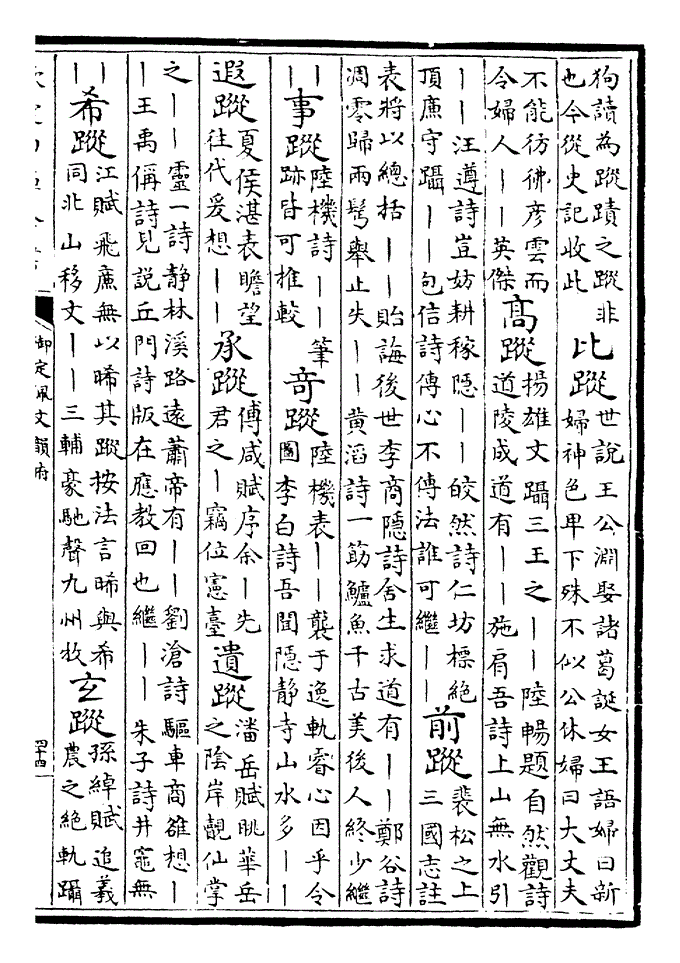 狗讀為蹤蹟之蹤非也今從史記收此 比蹤 世說王公淵娶諸葛誕女王語婦曰新婦神色卑下殊不似公休婦曰大丈夫
不能彷彿彥雲而令婦人丨丨英傑 高蹤 揚雄文躡三王之丨丨陸暢題自然觀詩道陵成道有丨丨施肩吾詩上山無水引
丨丨汪遵詩豈妨耕稼隱丨丨皎然詩仁坊標絕頂廉守躡丨丨包佶詩傳心不傳法誰可繼丨丨 前蹤 裴松之上三國志註
表將以總括丨丨貽誨後世李商隱詩舍生求道有丨丨鄭谷詩凋零歸兩鬢舉止失丨丨黃滔詩一筯鱸魚千古美後人終少繼
丨丨 事蹤 陸機詩丨丨筆跡皆可推較 奇蹤 陸機表丨丨襲于逸軌睿心因乎令圖李白詩吾聞隱靜寺山水多丨丨
遐蹤 夏侯湛表瞻望往代爰想丨丨 承蹤 傅咸賦序余丨先君之丨竊位憲臺 遺蹤 潘岳賦眺華岳之陰岸覿仙掌
之丨丨靈一詩静林溪路遠蕭帝有丨丨劉滄詩驅車商雒想丨丨王禹偁詩見說丘門詩版在應教回也繼丨丨朱子詩井竈無
丨丨 希蹤 江賦飛廉無以睎其蹤按法言睎與希同北山移文丨丨三輔豪馳聲九州牧 玄蹤 孫綽賦追羲農之絕軌躡
御定佩文韻府
四十四